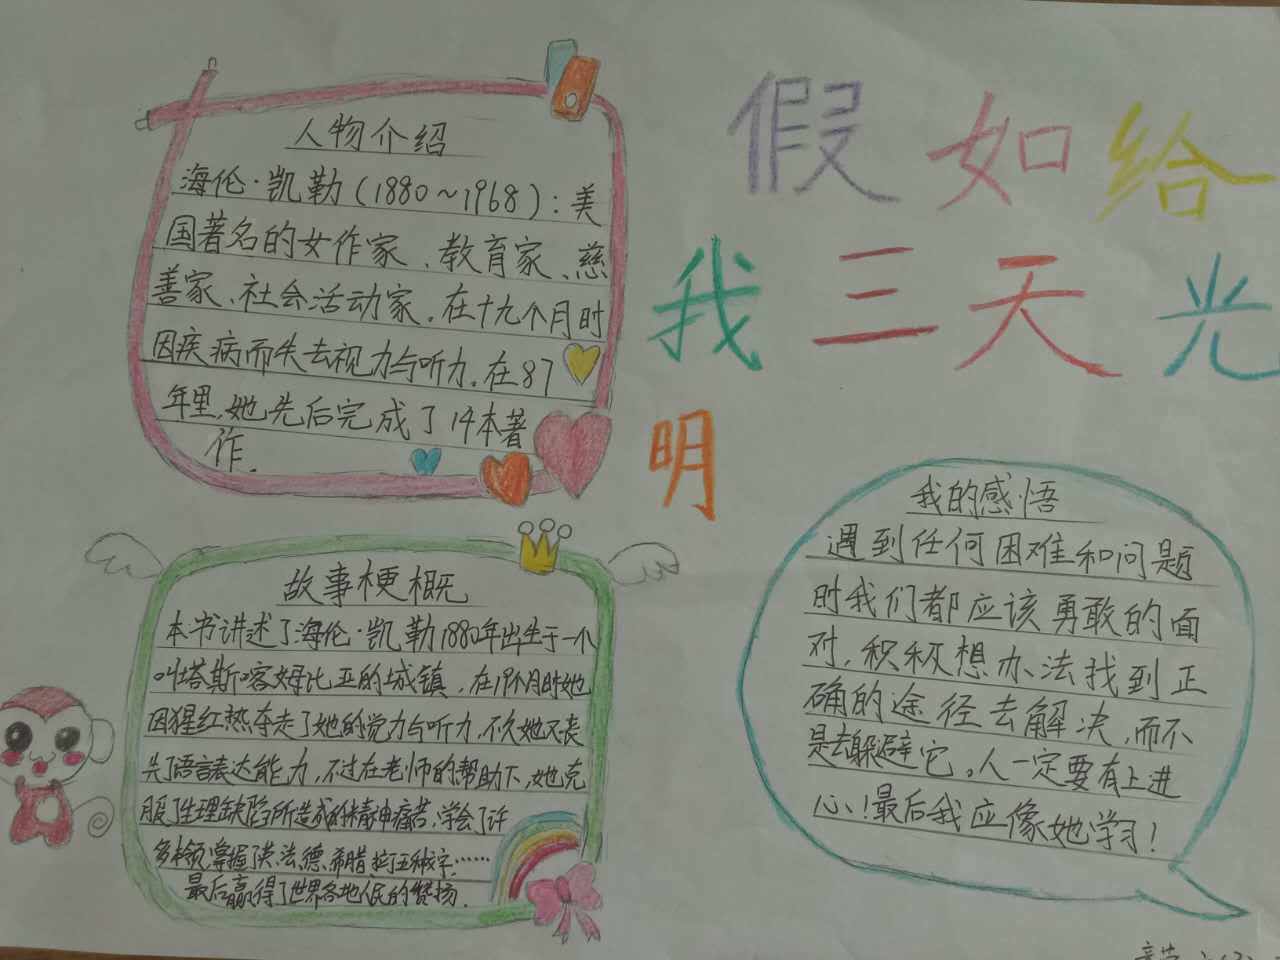 假如给
我三天光
明
人物介绍
海伦·凯勒(1880～1968):美
国著名的女作家、教育家、慈
善家、社会活动家。在十九个月时
因疾病而失去视力与听力。在87
年里,她先后完成了14本著
作。
故事梗概
本书讲述了海伦·凯勒1880年出生于一个
叫塔斯喀姆比亚的城镇,在19个月时她
因猩红热夺走了她的视力与听力,不久她又丧
失了语言表达能力,不过在老师的帮助下,她克
服了生理缺陷所造成的精神痛苦,学会了许
多本领,掌握了英、法、德、希腊、拉丁五种文字……
最后赢得了世界各地人民的赞扬.
我的感悟
遇到任何困难和问题
时我们都应该勇敢的面
对,积极想办法找到正
确的途径去解决,而不
是去躲避它。人一定要有上进
心!最后我应像她学习!